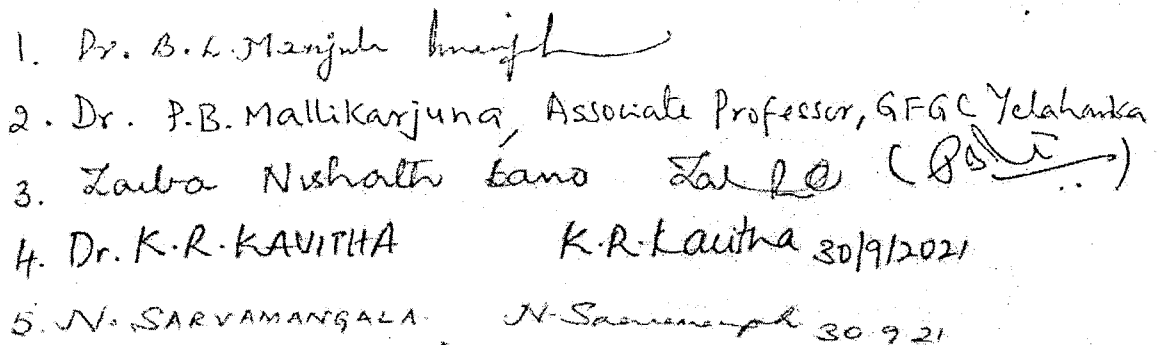 1. Dr. B.L. Manjula
2. Dr. P.B. Mallikarjuna, Associate Professor, GFGC Yelahanka
3. Zaiba Nishath bano
4. Dr. K.R. KAVITHA K.R. Kavitha 30/9/2021
5. N. SARVAMANGALA. N. 30.9.21